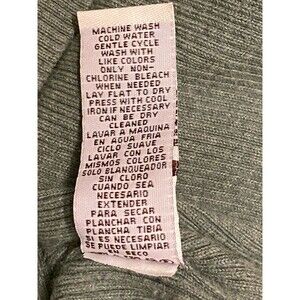 MACHINE WASH
COLD WATER
GENTLE CYCLE
WASH WITH
LIKE COLORS
ONLY NON-
CHLORINE BLEACH
WHEN NEEDED
LAY FLAT TO DRY
PRESS WITH COOL
IRON IF NECESSARY
CAN BE DRY
CLEANED
LAVAR A MAQUINA
EN AGUA FRIA
CICLO SUAVE
LAVAR CON LOS
MISMOS COLORES
SOLO BLANQUEADOR
SIN CLORO
CUANDO SEA
NECESARIO
EXTENDER
PARA SECAR
PLANCHAR CON
PLANCHA TIBIA
SI ES NECESARIO
SE PUEDE LIMPIAR
EN SECO